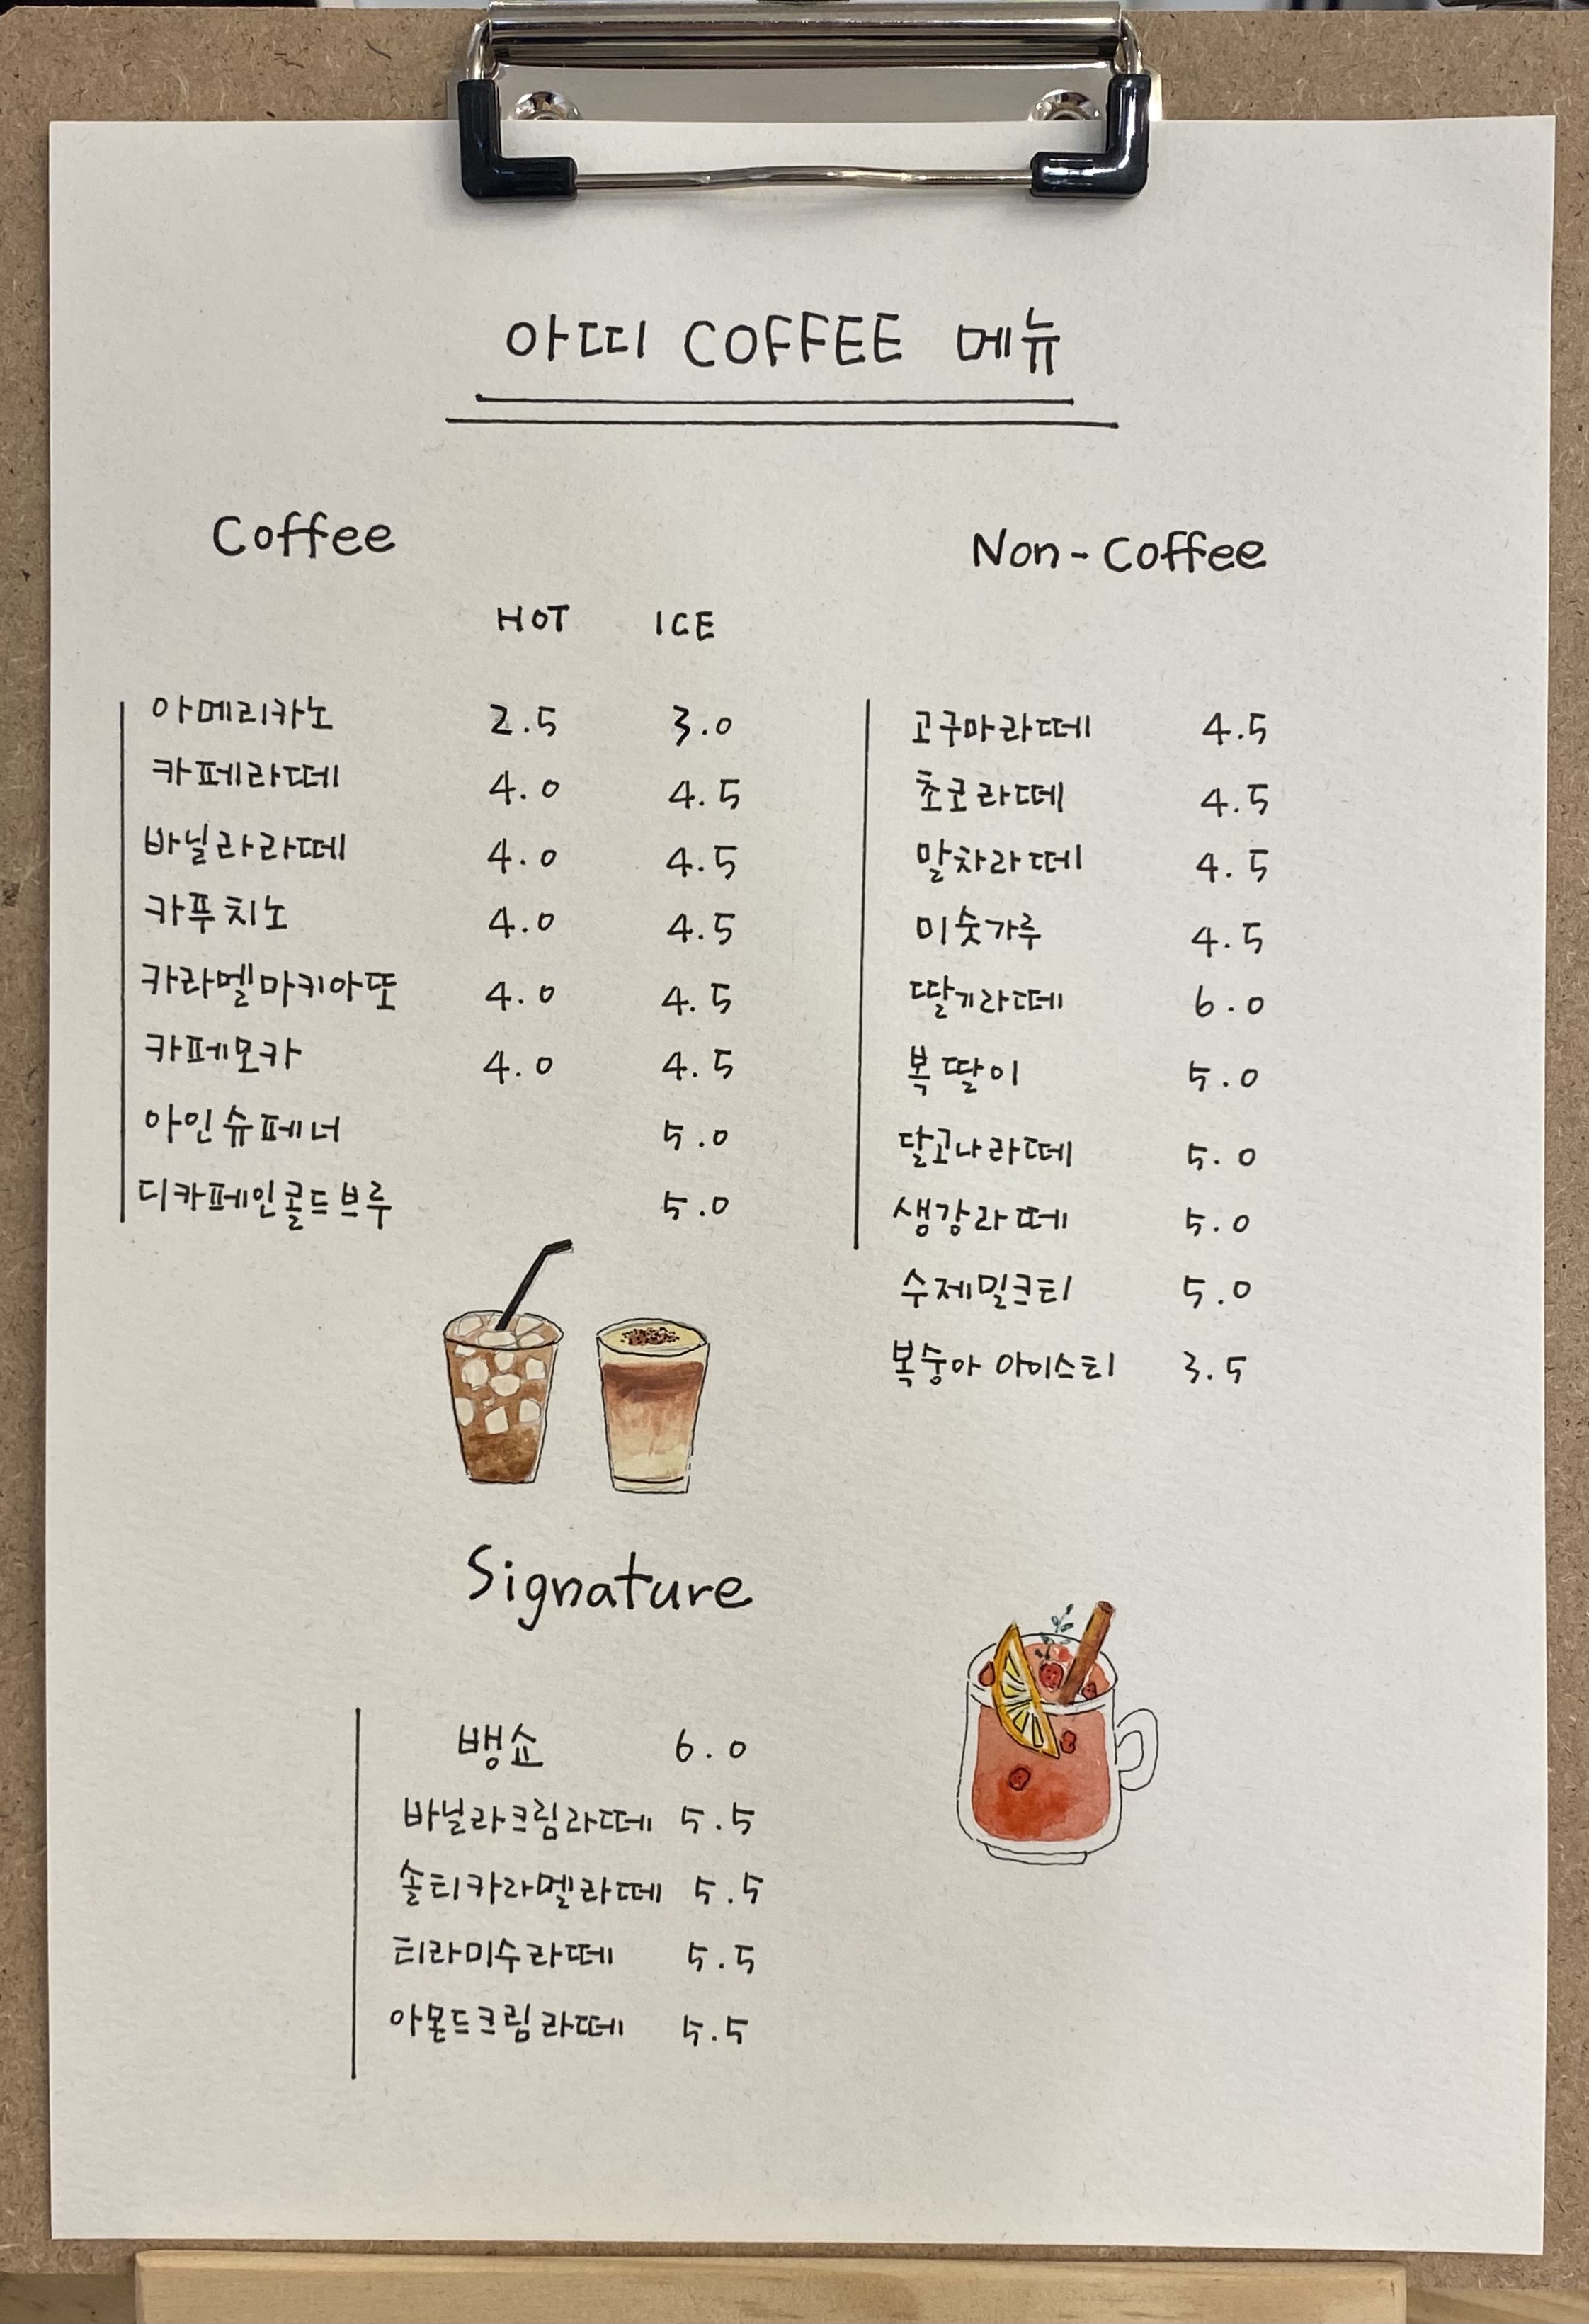 아띠 COFFEE 메뉴
Coffee
HOT ICE
아메리카노 2.5 3.0
카페라떼 4.0 4.5
바닐라라떼 4.0 4.5
카푸치노 4.0 4.5
카라멜마키아또 4.0 4.5
카페모카 4.0 4.5
아인슈페너 5.0
디카페인콜드브루 5.0
Non-Coffee
고구마라떼 4.5
초코라떼 4.5
말차라떼 4.5
미숫가루 4.5
딸기라떼 6.0
복딸이 5.0
달고나라떼 5.0
생강라떼 5.0
수제밀크티 5.0
복숭아 아이스티 3.5
Signature
뱅쇼 6.0
바닐라크림라떼 5.5
솔티카라멜라떼 5.5
티라미수라떼 5.5
아몬드크림라떼 5.5